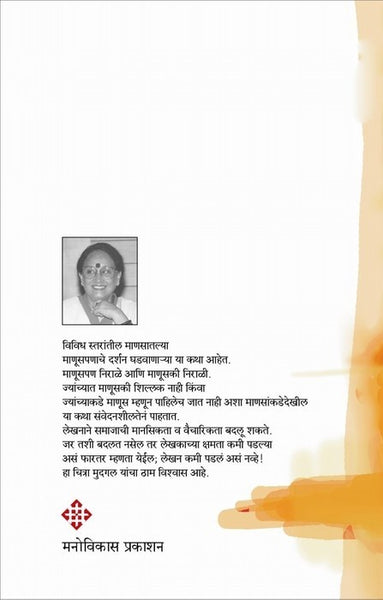 विविध स्तरांतील माणसातल्या
माणूसपणाचे दर्शन घडवाणाऱ्या या कथा आहेत.
माणूसपण निराळे आणि माणूसकी निराळी.
ज्यांच्यात माणूसकी शिल्लक नाही किंवा
ज्यांच्याकडे माणूस म्हणून पाहिलेच जात नाही अशा माणसांकडेदेखील
या कथा संवेदनशीलतेनं पाहतात.
लेखनाने समाजाची मानसिकता व वैचारिकता बदलू शकते.
जर तशी बदलत नसेल तर लेखकाच्या क्षमता कमी पडल्या
असं फारतर म्हणता येईल; लेखन कमी पडलं असं नव्हे!
हा चित्रा मुदगल यांचा ठाम विश्वास आहे.
मनोविकास प्रकाशन